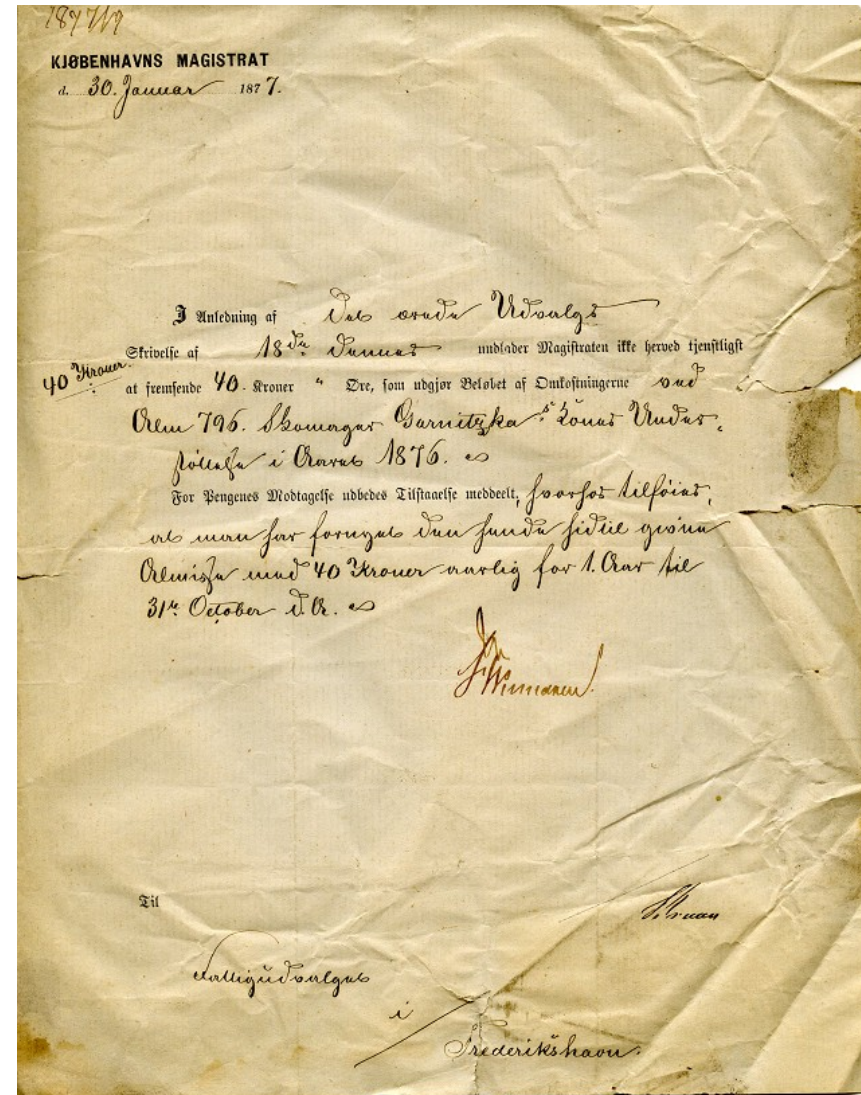 1877/19
KJØBENHAVNS MAGISTRAT
d. 30. Januar 1877.
I Anledning af det ærede Udvalgs
Skrivelse af 18de dennes undlader Magistraten ikke herved tjenstligst
40 Kroner.
at fremsende 40. Kroner " Øre, som udgjør Beløbet af Omkostningerne ved
Alm 796. Skomager Garnitzka's Kones Under-
støttelse i Aaret 1876.
For Pengenes Modtagelse udbedes Tilstaaelse meddeelt, hvorhos tilføies,
at man har fornyet den hende hidtil givne
Almisse med 40 Kroner aarlig for 1. Aar til
31te October d. A.
Til
Fattigudvalget
i
Frederikshavn.